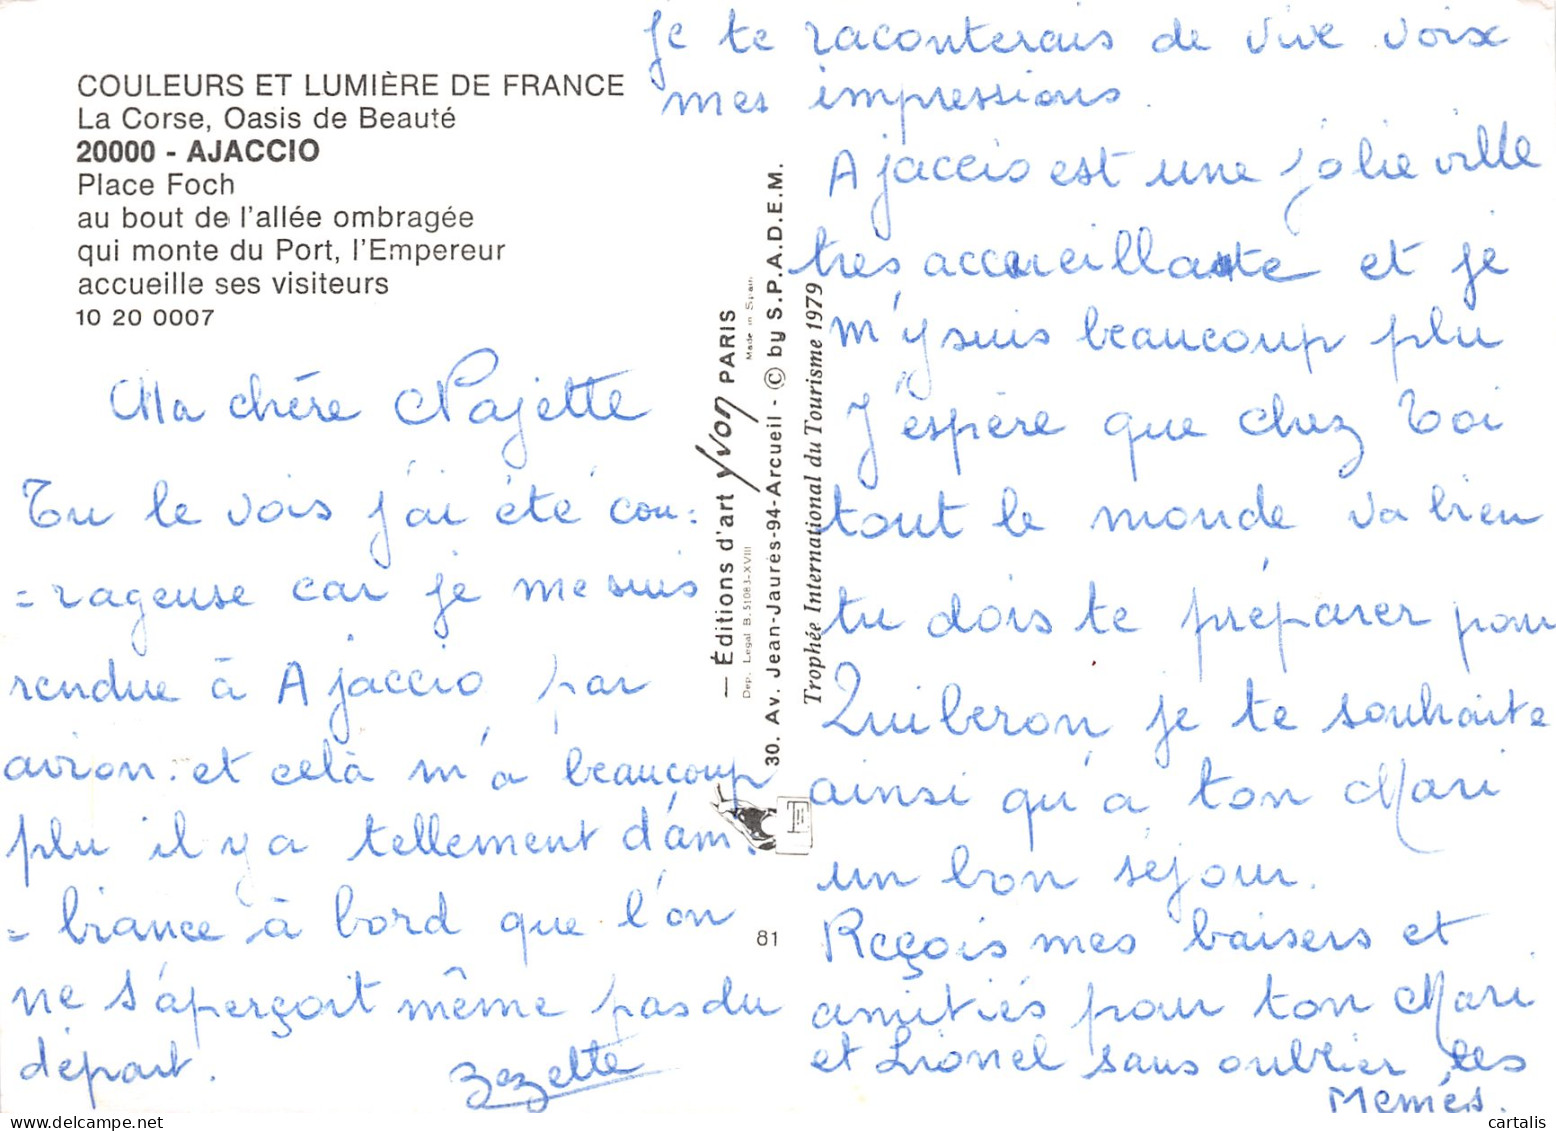 COULEURS ET LUMIÈRE DE FRANCE
La Corse, Oasis de Beauté
20000 - AJACCIO
Place Foch
au bout de l'allée ombragée
qui monte du Port, l'Empereur
accueille ses visiteurs
10 20 0007
Ma chère Najette
Tu le vois j'ai été cou:
=rageuse car je me suis
rendue à Ajaccio par
avion. et celà m'a beaucoup
plu il y a tellement d'am:
=biance à bord que l'on
ne s'aperçoit même pas du
départ.
Zezette
— Éditions d'art Yvon PARIS
Dep. Legal B. 51083-XVIII
Made in Spain
30. Av. Jean-Jaurès-94-Arcueil - © by S.P.A.D.E.M.
Trophée International du Tourisme 1979
81
je te raconterais de vive voix
mes impressions.
Ajaccio est une jolie ville
très accueillante et je
m'y suis beaucoup plu
J'espère que chez Toi
tout le monde va bien
tu dois te préparer pour
Quiberon je te souhaite
ainsi qu'à ton Mari
un bon séjour.
Reçois mes baisers et
amitiés pour ton Mari
et Lionel sans oublier les
Memés.
cartalis